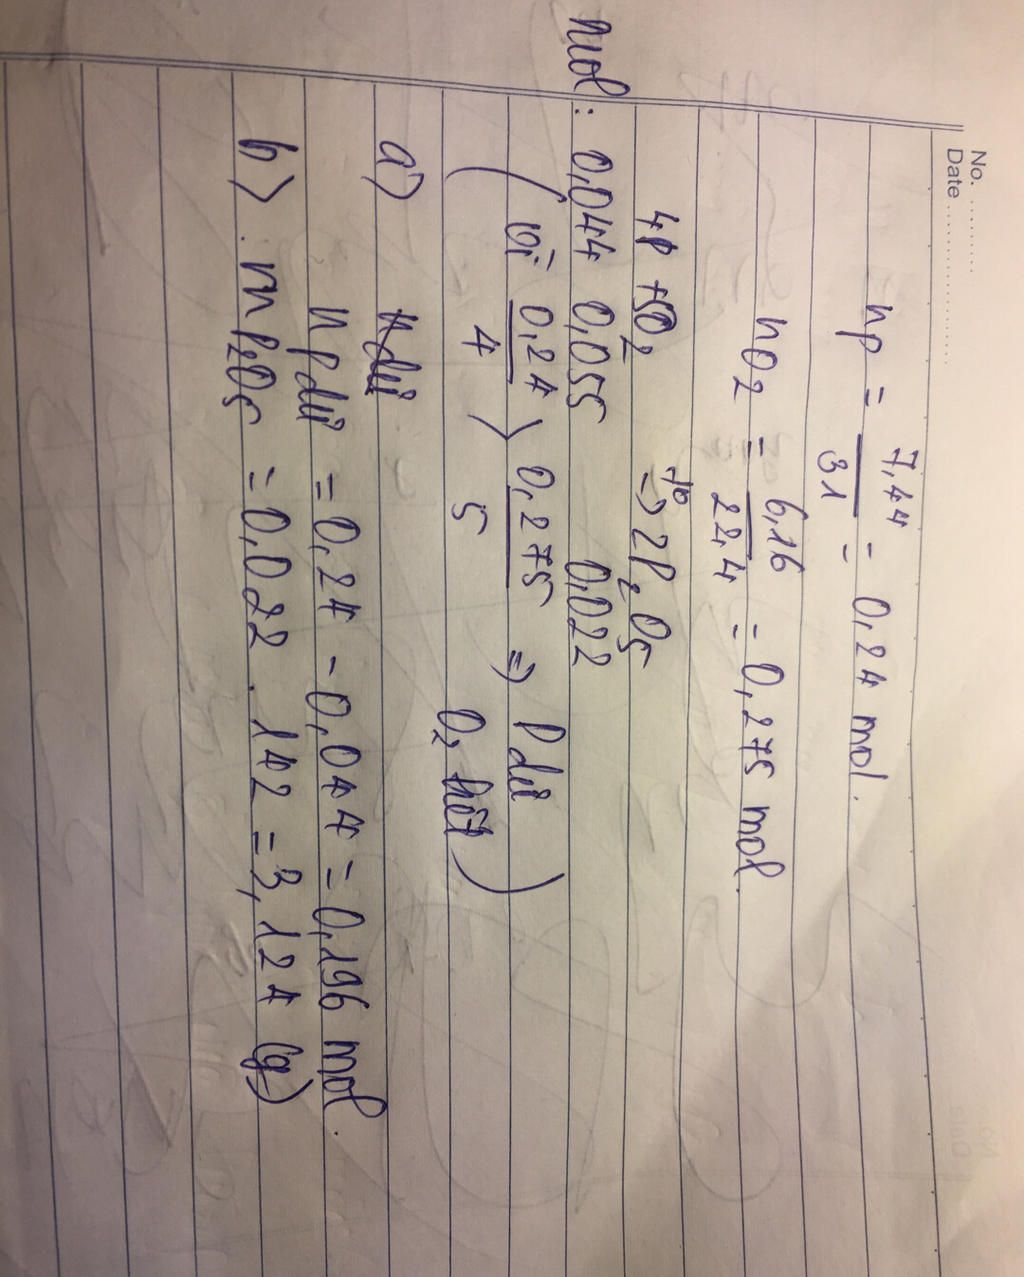 No. ..........
Date ....................
np = 7,44 / 31 = 0,24 mol.
nO2 = 6,16 / 22,4 = 0,275 mol.
4P + 5O2 t°→ 2P2O5
mol: 0,044 0,055 0,022
( vì 0,24 / 4 > 0,275 / 5 ⇒ P dư
O2 hết )
a) n dư
n p dư = 0,24 - 0,044 = 0,196 mol.
b) . m P2O5 = 0,022 . 142 = 3,124 (g)